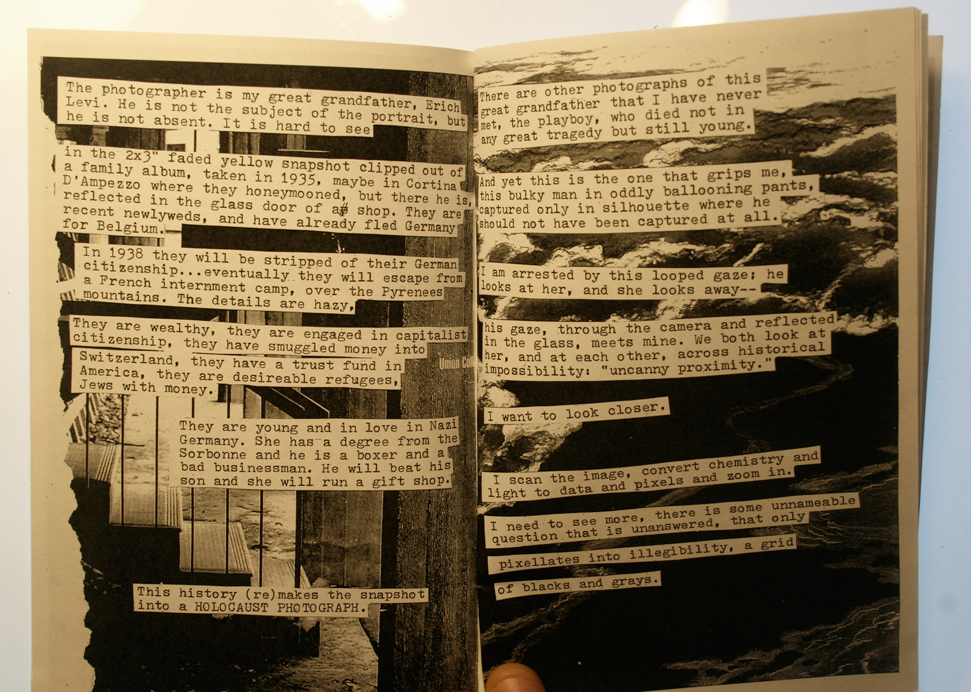 The photographer is my great grandfather, Erich
Levi. He is not the subject of the portrait, but
he is not absent. It is hard to see
in the 2x3" faded yellow snapshot clipped out of
a family album, taken in 1935, maybe in Cortina
D'Ampezzo where they honeymooned, but there he is,
reflected in the glass door of a shop. They are
recent newlyweds, and have already fled Germany
for Belgium.
In 1938 they will be stripped of their German
citizenship...eventually they will escape from
a French internment camp, over the Pyrenees
mountains. The details are hazy,
They are wealthy, they are engaged in capitalist
citizenship, they have smuggled money into
Switzerland, they have a trust fund in
America, they are desireable refugees,
Jews with money.
They are young and in love in Nazi
Germany. She has a degree from the
Sorbonne and he is a boxer and a
bad businessman. He will beat his
son and she will run a gift shop.
This history (re)makes the snapshot
into a HOLOCAUST PHOTOGRAPH.
There are other photographs of this
great grandfather that I have never
met, the playboy, who died not in
any great tragedy but still young.
And yet this is the one that grips me,
this bulky man in oddly ballooning pants,
captured only in silhouette where he
should not have been captured at all.
I am arrested by this looped gaze; he
looks at her, and she looks away--
his gaze, through the camera and reflected
in the glass, meets mine. We both look at
her, and at each other, across historical
impossibility: "uncanny proximity."
I want to look closer.
I scan the image, convert chemistry and
light to data and pixels and zoom in.
I need to see more, there is some unnameable
question that is unanswered, that only
pixellates into illegibility, a grid
of blacks and grays.